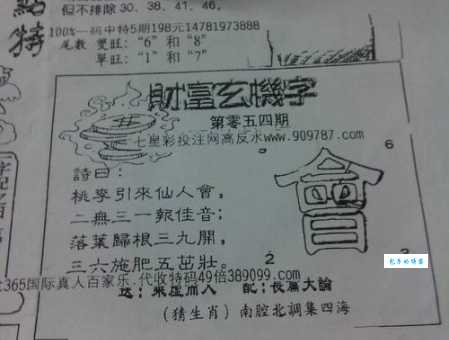 但不排除30．38．41．46。
100%一码中特5期198元14781973888
尾數 雙旺：“6” 和 “8”
單旺：“1” 和 “7”
點特
財富玄機字
第零五四期
七星彩投注网高反水www.909787.com
詩曰：
桃李引來仙人會，
二無三一報佳音；
落葉歸根三九開，
三六施肥五茁壯。
6
會
2
365国际真人百家乐.代收特码49倍389099.com
送：乘虛而入 配：長篇大論
（猜生肖）南腔北調集四海